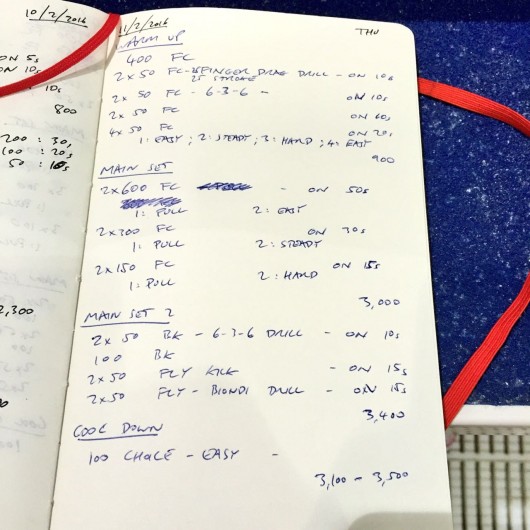 10/2/2016
ON 5s
ON 10s
10s
800
200 : 30s
100 : 20s
50 : 10s
2,300
11/2/2016 THU
WARM UP
400 FC
2 x 50 FC - 25 FINGER DRAG DRILL - ON 10s
25 STROKE
2 x 50 FC - 6-3-6 - ON 10s
2 x 50 FC ON 60s
4 x 50 FC ON 20s
1: EASY ; 2: STEADY ; 3: HARD ; 4: EASY
900
MAIN SET
2 x 600 FC - ON 50s
1: PULL 2: EASY
2 x 300 FC ON 30s
1: PULL 2: STEADY
2 x 150 FC ON 15s
1: PULL 2: HARD
3,000
MAIN SET 2
2 x 50 BK - 6-3-6 DRILL - ON 10s
100 BK
2 x 50 FLY KICK - ON 15s
2 x 50 FLY - BIONDI DRILL - ON 15s
3,400
COOL DOWN
100 CHOICE - EASY -
3,100 - 3,500